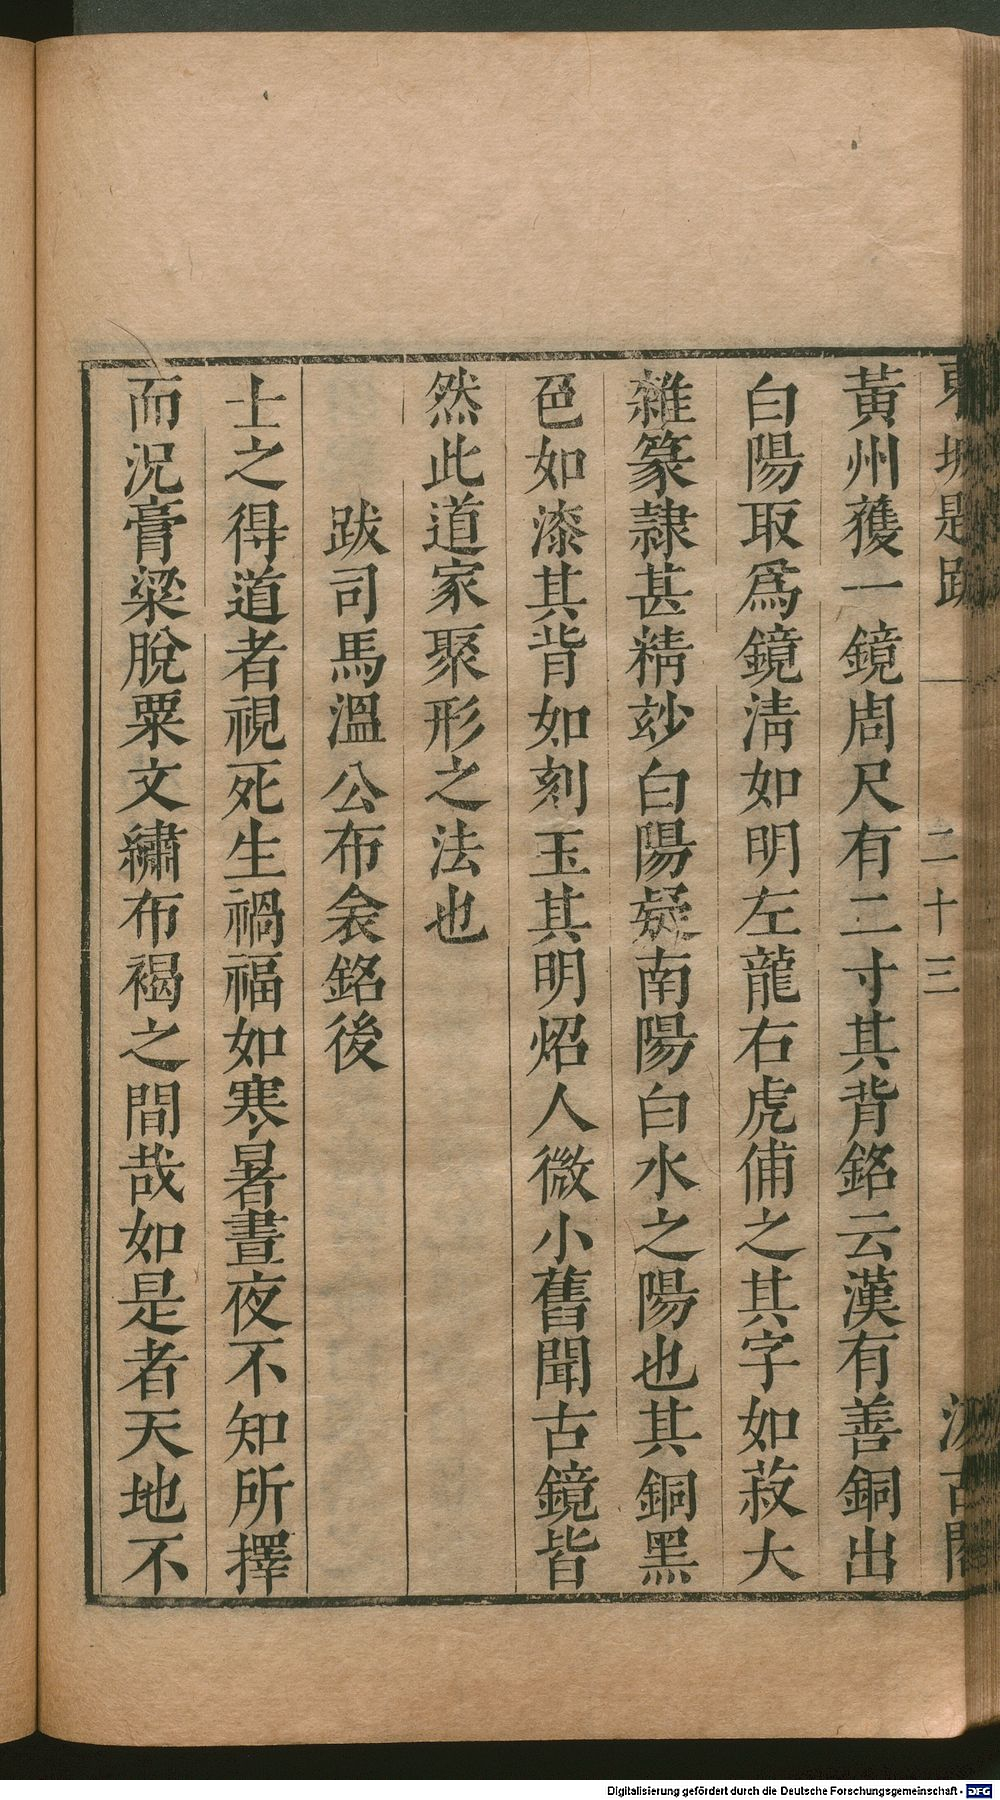 東坡題跋 二十三 汲古閣
黃州獲一鏡周尺有二寸其背銘云漢有善銅出
白陽取爲鏡淸如明左龍右虎俌之其字如菽大
雜篆隷甚精玅白陽疑南陽白水之陽也其銅黑
色如漆其背如刻玉其明炤人微小舊聞古鏡皆
然此道家聚形之法也
跋司馬溫公布衾銘後
士之得道者視死生禍福如寒暑晝夜不知所擇
而况膏粱脫粟文繡布褐之間哉如是者天地不
Digitalisierung gefördert durch die Deutsche Forschungsgemeinschaft - DFG